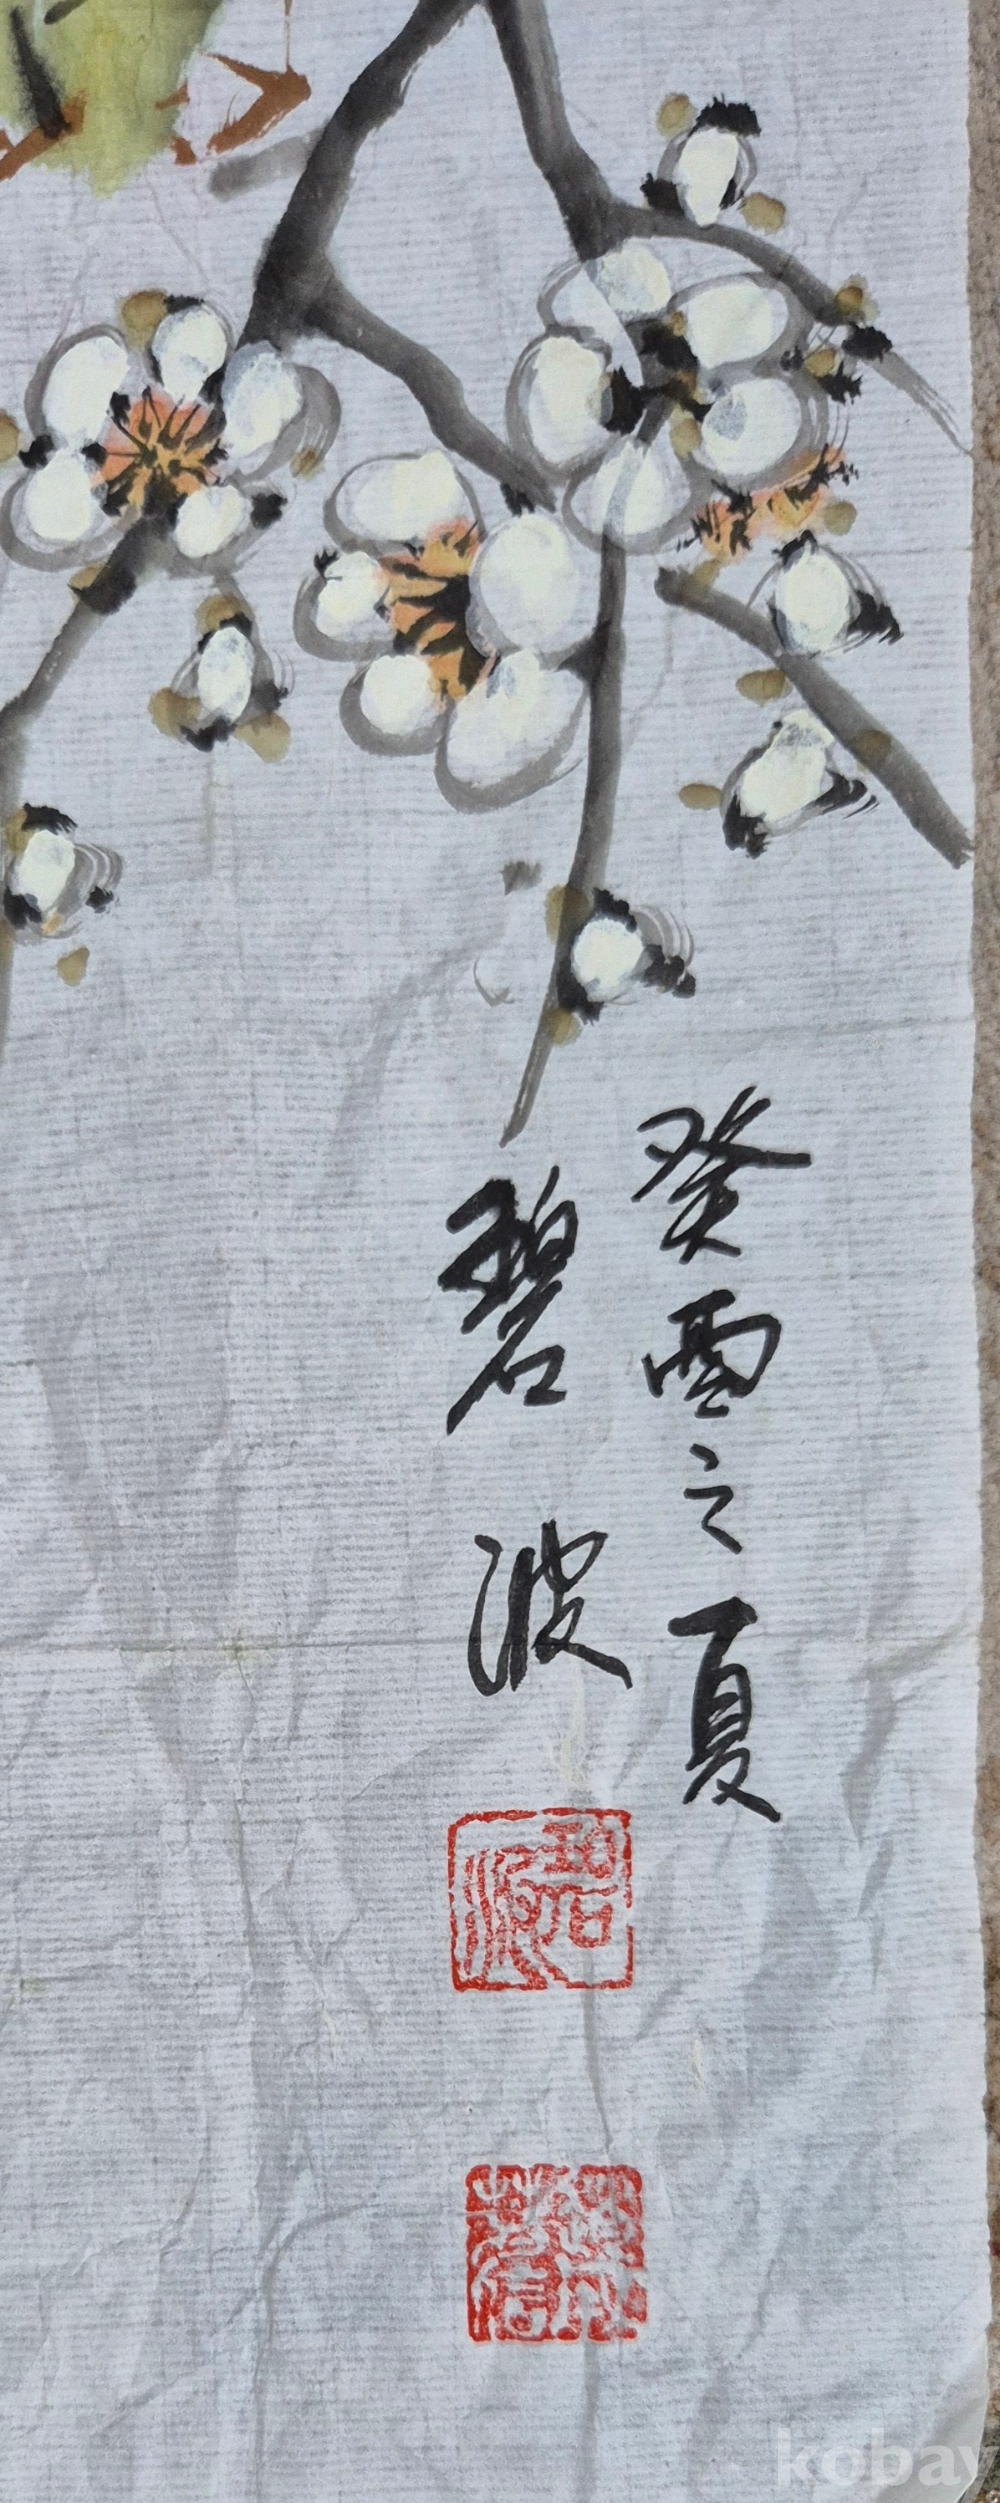 癸酉之夏
碧波
碧波
kobay